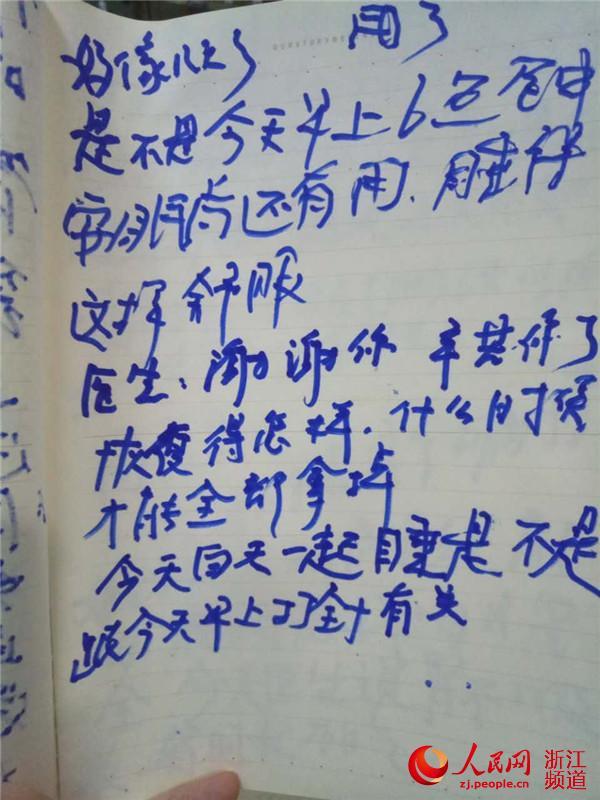 好像几天了 用了
是不是今天早上6点
安眠药还有用、睡得
这样舒服
医生：谢谢你 辛苦你了
恢复得怎样．什么时候
才能全部拿掉
今天白天一起睡是不是
跟今天早上打针有关
人民网 浙江频道
zj.people.cn